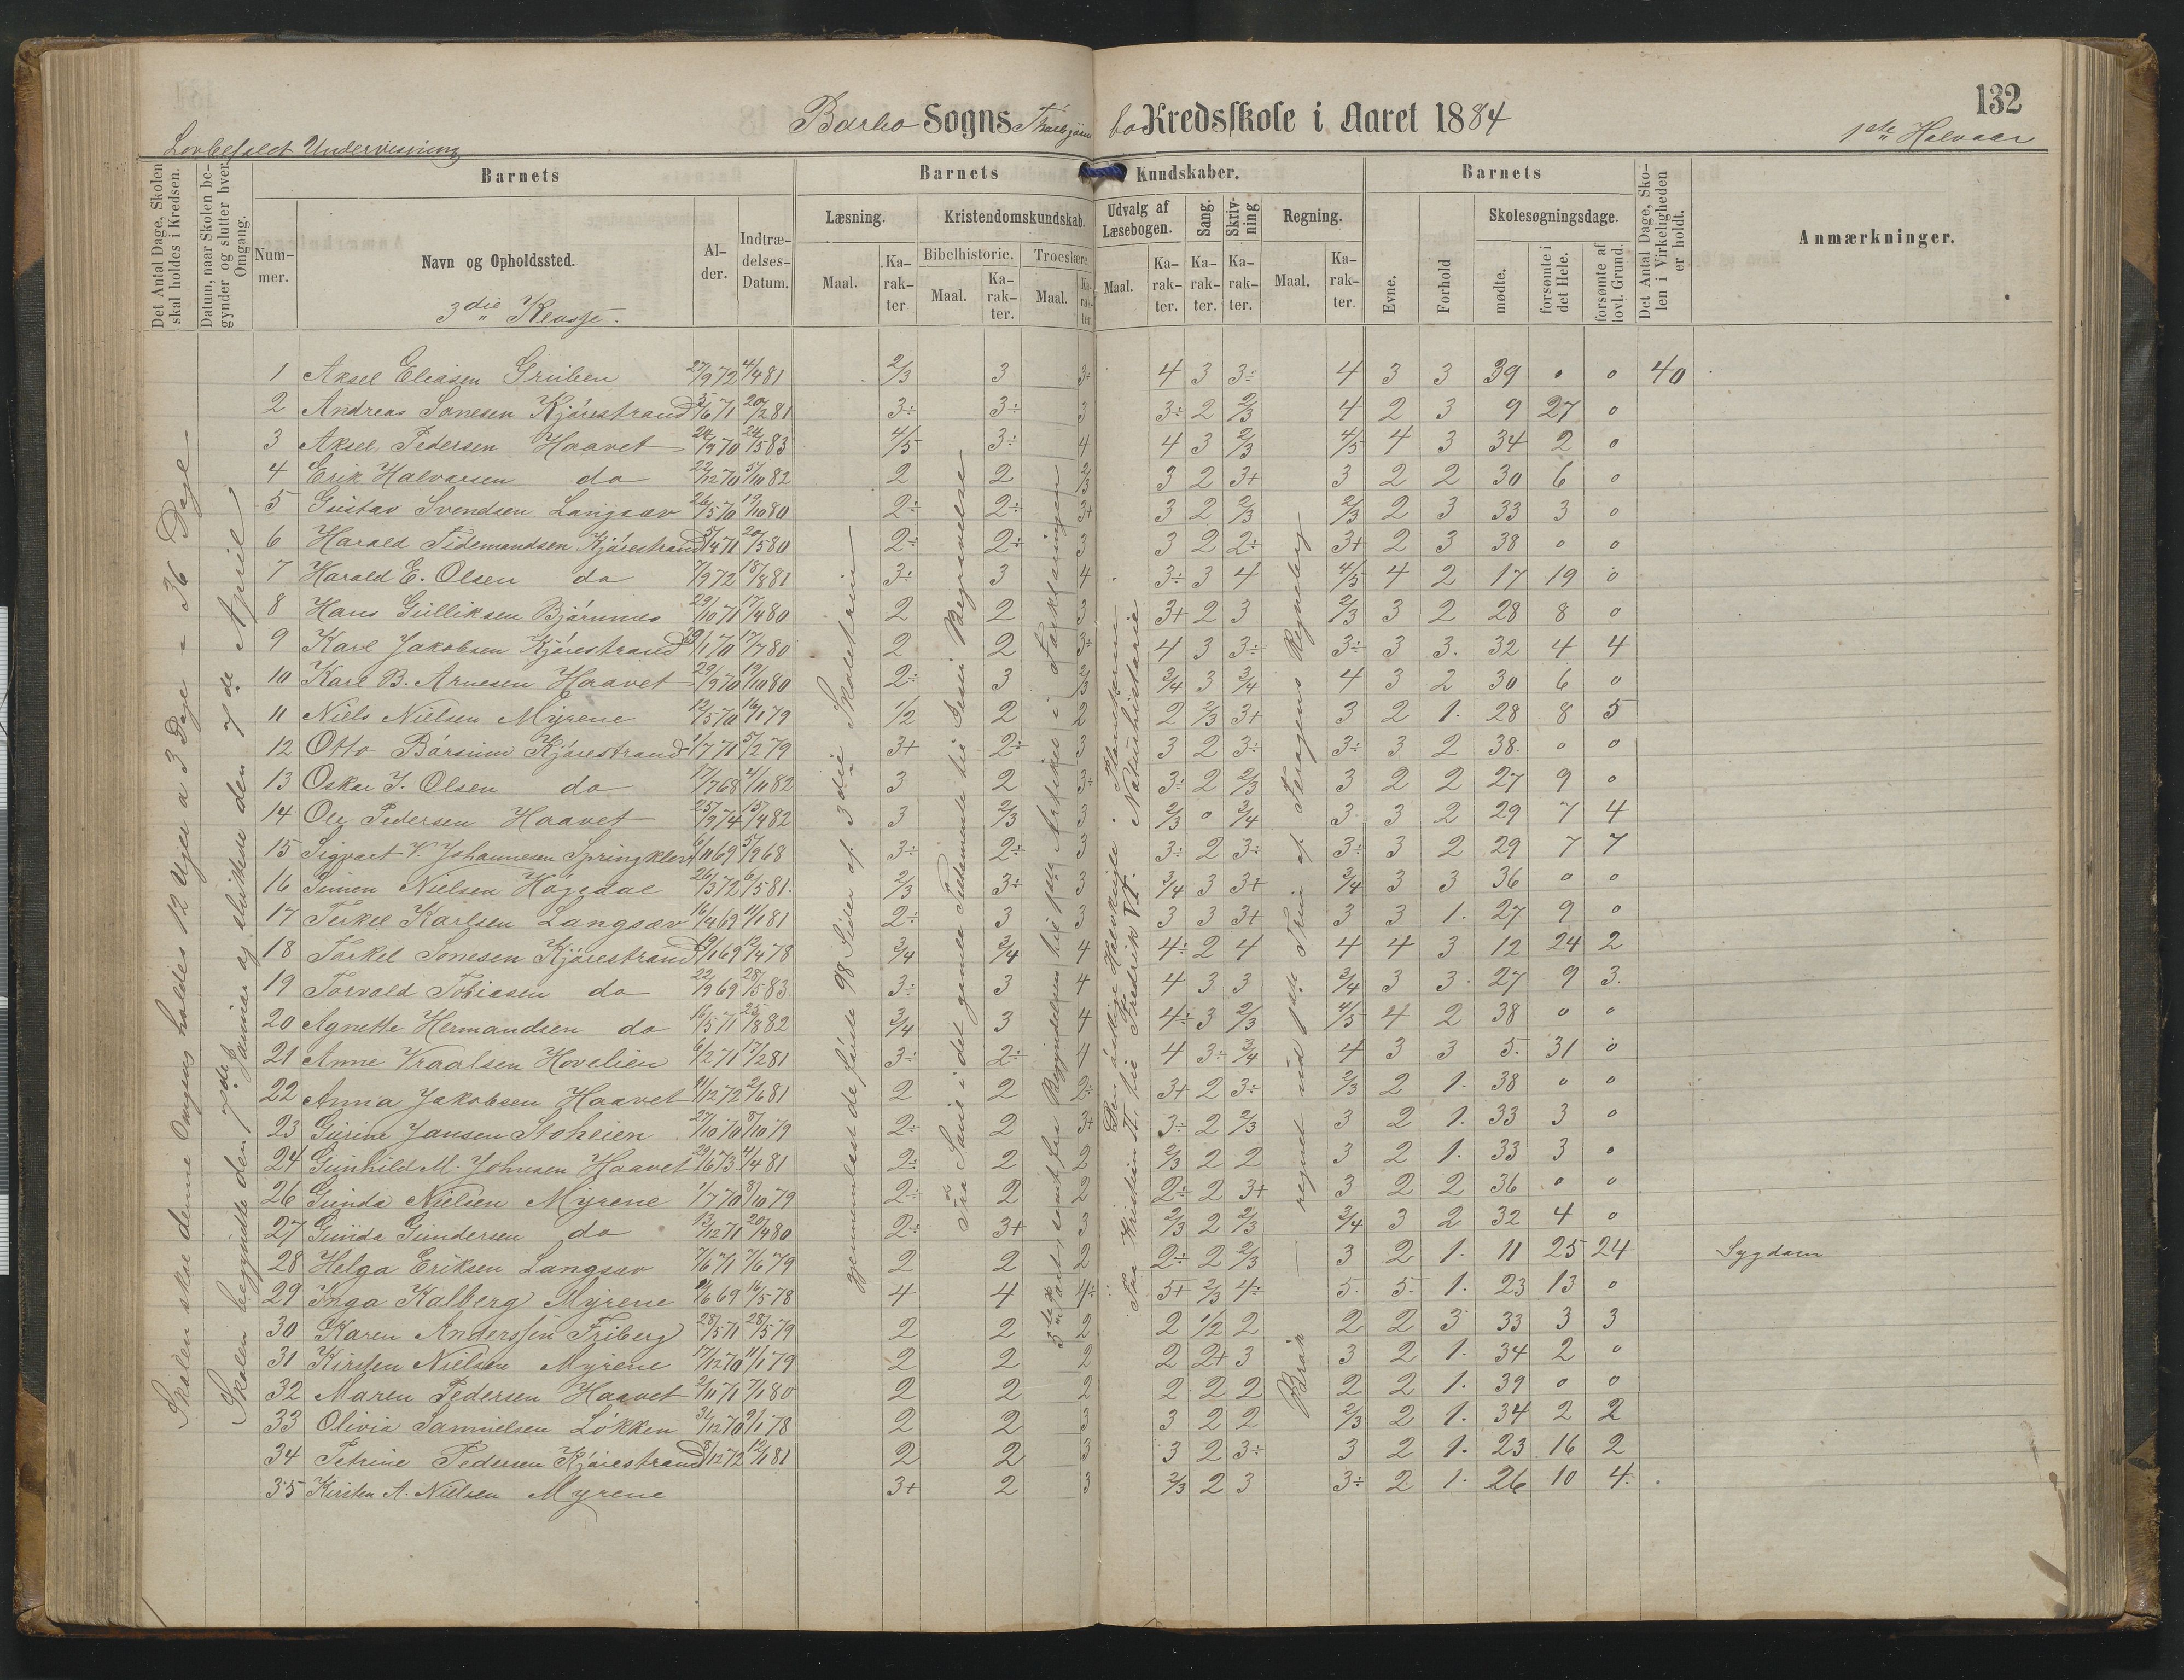 132
Barbo Sogns Thorbjørnsbo Kredsskole i Aaret 1884
Lovbefalet Undervisning
1ste Halvaar
Det Antal Dage, Skolen skal holdes i Kredsen.
Datum, naar Skolen begynder og slutter hver Omgang.
Barnets
Nummer.
Navn og Opholdssted.
Alder.
Indtrædelses-Datum.
Barnets Kundskaber.
Læsning.
Maal.
Karakter
Kristendomskundskab.
Bibelhistorie.
Maal.
Karakter.
Troeslære.
Maal.
Karakter
Udvalg af Læsebogen.
Maal.
Karakter.
Sang.
Karakter.
Skrivning
Karakter.
Regning.
Maal.
Karakter.
Barnets
Evne.
Forhold
Skolesøgningsdage.
mødte.
forsømte i det Hele.
forsømte af lovl. Grund.
Det Antal Dage, Skolen i Virkeligheden er holdt.
Anmærkninger.
3die Klasse.
Skolen skal denne Omgang holdes 12 Uger a 3 Dage = 36 Dage
Skolen begyndte den 7de Januar og sluttede den 7de April
gjennemlæst de første 98 Sider af 3die Skoletrin
Fra Saul i det gamle Testamente til Jesu Begravelse
Fra Kristian II. til Fredrik VI. Naturhistorie
Brøk — regnet ud 1ste Trin af Føragens Regnebog
1 Aksel Eliasen Gruben 27/9 72 4/4 81 2/3 3 3+ 4 3 3÷ 4 3 3 39 0 0 40
2 Andreas Sonesen Kjørestrand 5/6 71 20/2 81 3÷ 3÷ 3 3÷ 2 2/3 4 2 3 9 27 0
3 Aksel Pedersen Haavet 24/9 70 24/5 83 4/5 3÷ 4 4 3 2/3 4/5 4 3 34 2 0
4 Erik Halvorsen do 22/12 70 5/10 82 2 2 2/3 3 2 3+ 3 2 2 30 6 0
5 Gustav Svendsen Langsæv 26/5 70 19/10 80 2÷ 2÷ 3+ 3 2 2/3 2/3 2 3 33 3 0
6 Harald Tidemandsen Kjørestrand 5/4 71 20/5 80 2÷ 2÷ 3 3 2 2÷ 3+ 2 3 38 0 0
7 Harald E. Olsen do 7/9 72 18/8 81 3÷ 3 4 3÷ 3 4 4/5 4 2 17 19 0
8 Hans Gulliksen Bjørnnes 29/10 71 17/4 80 2 2 3 3+ 2 3 2/3 3 2 28 8 0
9 Karl Jakobsen Kjørestrand 17/7 80 2 2 3+ 4 3 3÷ 3÷ 3 3. 32 4 4
10 Karl B. Arnesen Haavet 29/9 70 19/10 80 2÷ 3 2/3 3/4 3 3/4 4 3 2 30 6 0
11 Niels Nielsen Myrene 12/5 70 16/1 79 1/2 2 2 2 2/3 3+ 3 2 1. 28 8 5
12 Otto Børsum Kjørestrand 1/7 71 5/2 79 3+ 2÷ 3 3 2 3÷ 3÷ 3 2 38. 0 0
13 Oskar J. Olsen do 17/7 68 4/11 82 3 2 3÷ 3÷ 2 2/3 3 2 2 27 9 0
14 Ole Pedersen Haavet 25/9 74 15/4 82 3 2/3 3 2/3 0 3/4 3. 3 2 29 7 4
15 Sigvart V. Johannesen Springkleiv 3÷ 2÷ 3 3÷ 2 3÷ 3÷ 3 2 29 7 7
16 Simen Nielsen Høgedal 26/3 72 6/5 81. 2/3 3÷ 3 3/4 3 3+ 3/4 3 3 36 0 0
17 Terkel Karlsen Langsæv 16/4 69 11/1 81 2÷ 3 3 3 3 3+ 3 3 1. 27 9 0
18 Torkel Sonesen Kjørestrand 19/1 69 12/4 78 3/4 3/4 4 4÷ 2 4 4 4 3 12 24 2
19 Torvald Tobiasen do 22/9 69 28/5 83. 3÷ 3 4 4 3 3 3/4 3 3. 27 9 3.
20 Agnethe Hermandsen do 16/5 71 25/8 82 3/4 3 4 4÷ 3 2/3 4/5 4 2 38 0 0
21 Anne Vraalsen Hovelien 6/2 71 17/2 81 3÷ 2÷ 4 4 3÷ 3/4 4 3 3 5. 31 0
22 Anna Jakobsen Haavet 11/12 72 2/6 81 2 2 2÷ 3+ 2 3÷ 2/3 2 1. 38 0 0
23 Gurine Jansen Stoheien 27/10 70 8/10 79 2÷ 2 3+ 3÷ 2 2/3 3 2 1. 33 3 0
24 Gunhild M. Johnsen Haavet 29/6 73 4/4 81 2÷ 2 2 2/3 2 2 3 2 1. 33 3 0
26 Gunda Nielsen Myrene 1/7 70 8/10 79 2÷ 2 2 2÷ 2 3+ 3 2 2 36 0 0
27 Gunda Gundersen do 13/12 71 20/4 80 2÷ 3+ 3 2/3 2 2/3 3/4 3 2 32 4 0
28 Helga Eriksen Langsæv 7/6 71 7/6 79 2 2 2 2÷ 2 2/3 3 2 1. 11 25 24 Sygdom
29 Inga Kalberg Myrene 4/6 69 16/5 78 4 4 4÷ 5+ 2/3 4÷ 5. 5. 1. 23 13 0
30 Karen Anderssen Friberg 28/5 71 28/5 79 2 2 2 2 1/2 2 2 2 3 33 3 3
31 Kirsten Nielsen Myrene 17/12 70 11/1 79 2 2 2 2 2+ 3 3 2 1. 34 2 0
32 Maren Pedersen Haavet 2/11 71 7/1 80 2 2 2 2 2 2 2 2 1. 39 0 0
33 Olivia Samuelsen Løkken 31/12 70 9/1 78 2 2 3 3 2 2 2/3 2 1. 34 2 2
34 Petrine Pedersen Kjørestrand 8/12 72 12/1 81 2 2 3 3 2 3÷ 3 2 1. 23 16 2
35 Kirsten A. Nielsen Myrene 3+ 2 3 2/3 2 3 3÷ 2 1. 26 10 4.